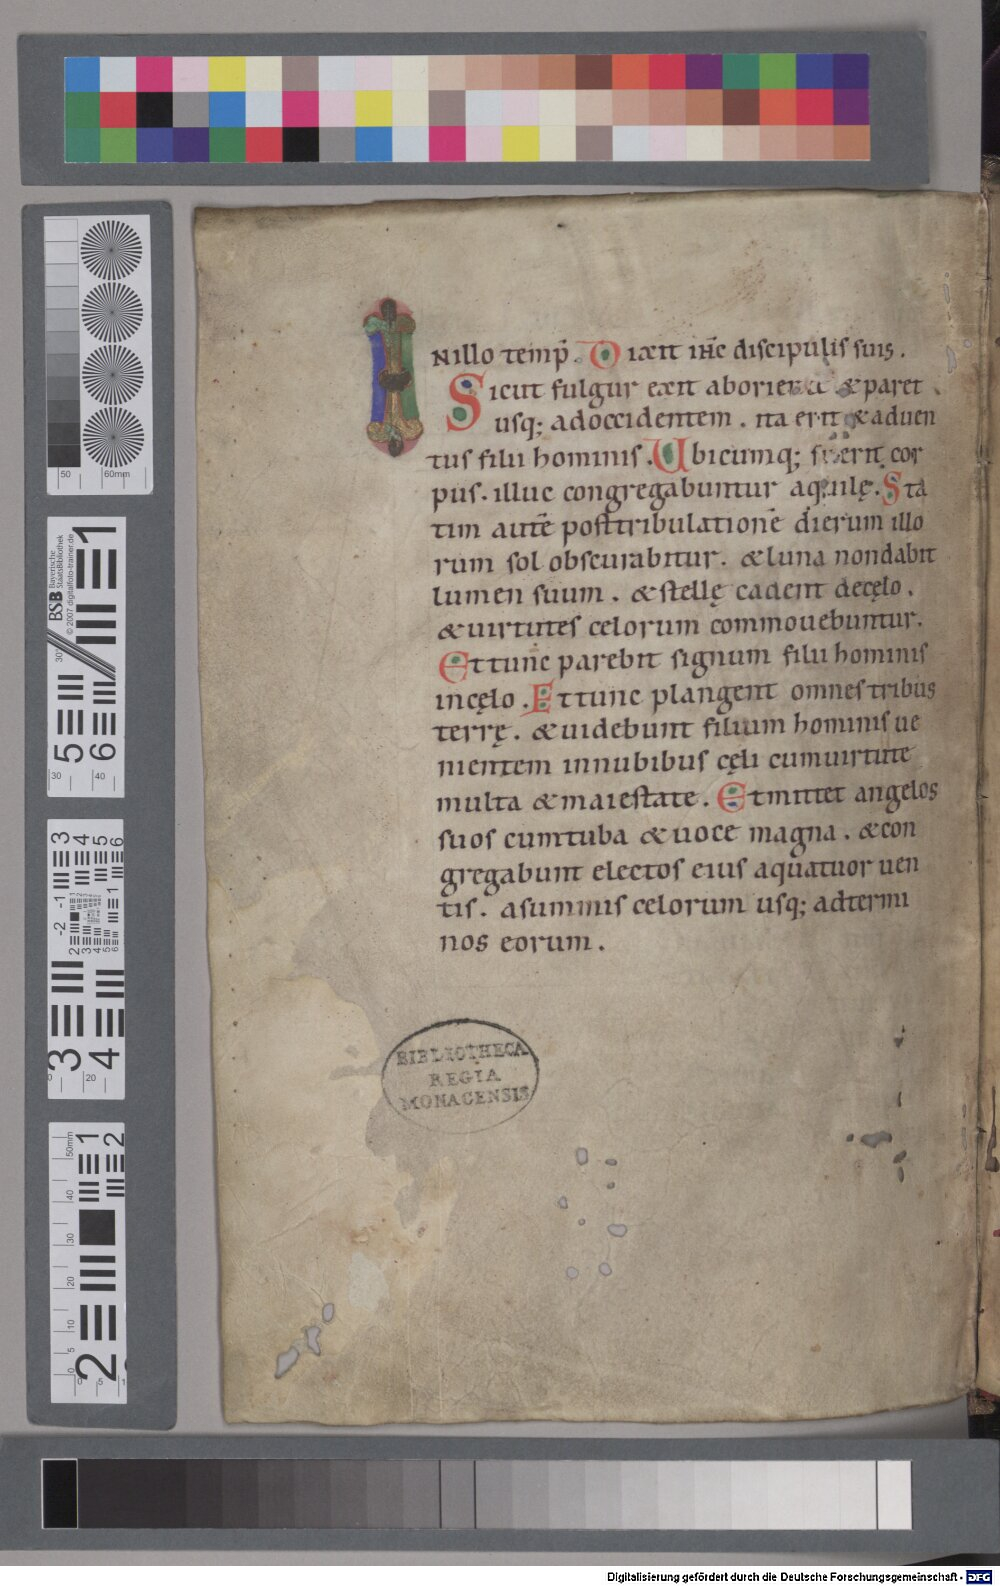 INillo temp̄. Dixit ih̄c discipulis suis.
Sicut fulgur exit aboriente &paret
usq; adoccidentem. ita erit &aduen
tus filii hominis. Ubicumq; fuerit cor
pus. illuc congregabuntur aquilę. Sta
tim autē posttribulationē dierum illo
rum sol obscurabitur. &luna nondabit
lumen suum. &stellę cadent decęlo.
&uirtutes celorum commouebuntur.
Et tunc parebit signum filii hominis
incęlo. Et tunc plangent omnes tribus
terrę. &uidebunt filium hominis ue
nientem innubibus cęli cumuirtute
multa &maiestate. Etmittet angelos
suos cumtuba &uoce magna. &con
gregabunt electos eius aquatuor uen
tis. asummis celorum usq; adtermi
nos eorum.
BIBLIOTHECA
REGIA
MONACENSIS
Digitalisierung gefördert durch die Deutsche Forschungsgemeinschaft - DFG